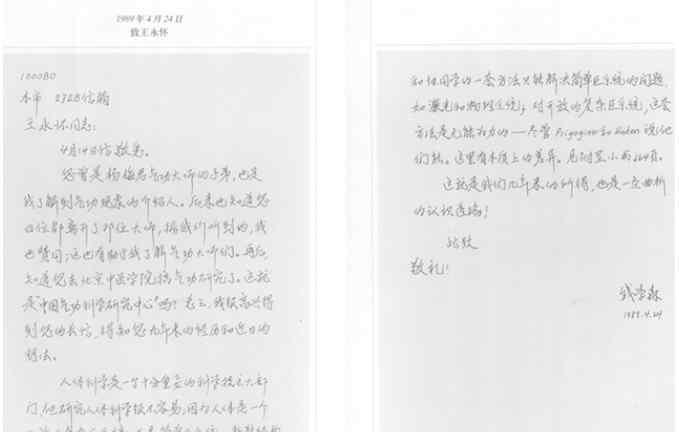 1989年4月24日
致王永怀
100080
本市 2728信箱
王永怀同志:
4月14日信敬悉。
您曾是杨梅君气功大师的子弟,也是
我了解到气功现象的介绍人。后来也知道您
也离开了那位大师,据我们听到的,我
也赞同;这也有助于我了解气功大师们。再后,
知道您去北京中医学院搞气功研究了。这就
是“中国气功科学研究中心”吗?总之,我很高兴得
到您的长信,得知您九年来的经历和近日的
想法。
人体科学是一个十分重要的科学技术大部
门,但研究人体科学很不容易,因为人体是一个
和协同学的一套方法只能解决简单巨系统的问题,
如激光和物理系统;对开放的复杂巨系统,这套
方法是无能为力的——尽管 Prigogine 和 Haken 说他
们能。这里有本质上的差异。见附呈小书264页。
这就是我们九年来的所得,也是一条曲折
的认识道路!
此致
敬礼!
钱学森
1989.4.24